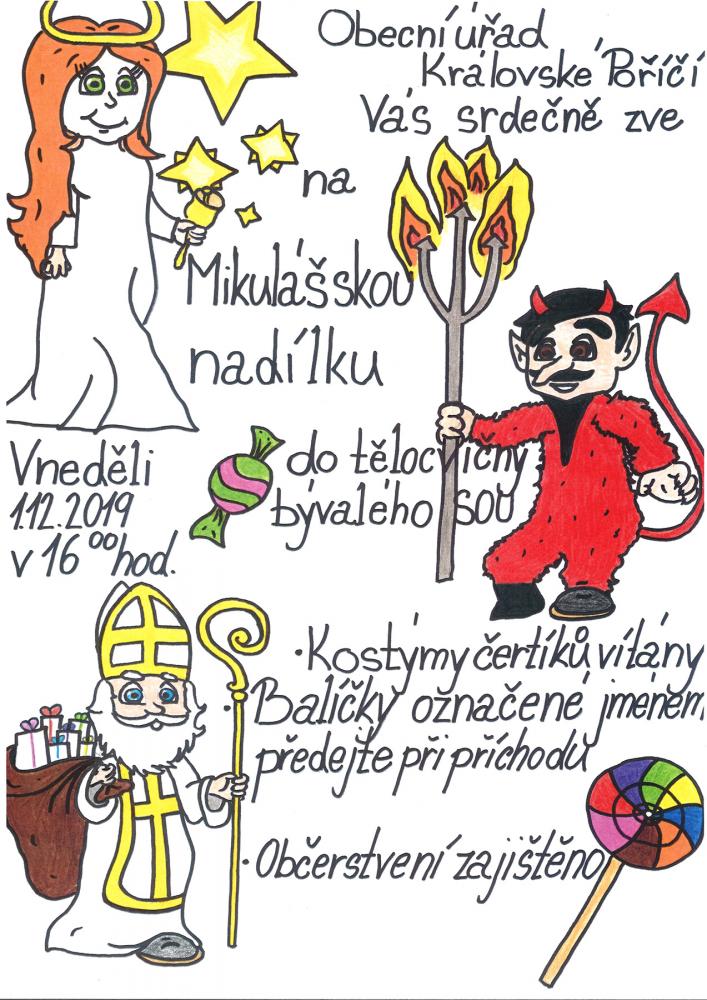 Obecní úřad
Královské Poříčí
Vás srdečně zve
na
Mikulášskou
nadílku
V neděli
1.12.2019
v 16⁰⁰ hod.
do tělocvičny
bývalého SOU
· Kostýmy čertíků vítány
· Balíčky označené jménem
předejte při příchodu
· Občerstvení zajištěno